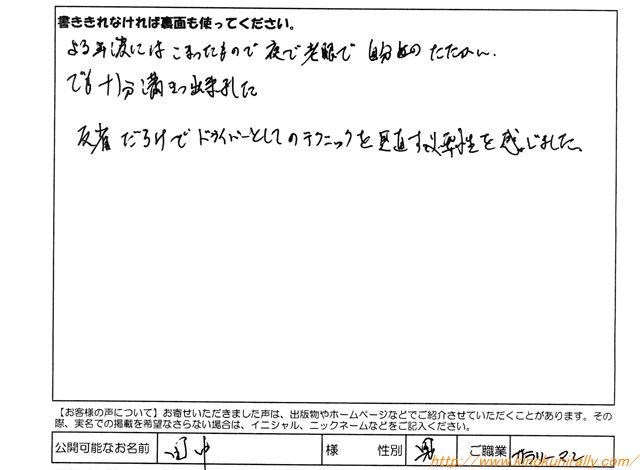 書ききれなければ裏面も使ってください。
よる年波にはこまったもので夜で老眼で自分とのたたかい。
でも十分満まつ出来ました
反省だらけでドライバーとしてのテクニックを見直す必要性を感じました。
【お客様の声について】お寄せいただきました声は、出版物やホームページなどでご紹介させていただくことがあります。その
際、実名での掲載を希望なさらない場合は、イニシャル、ニックネームなどをご記入ください。
公開可能なお名前 田中 様 性別 男 ご職業 サラリーマン